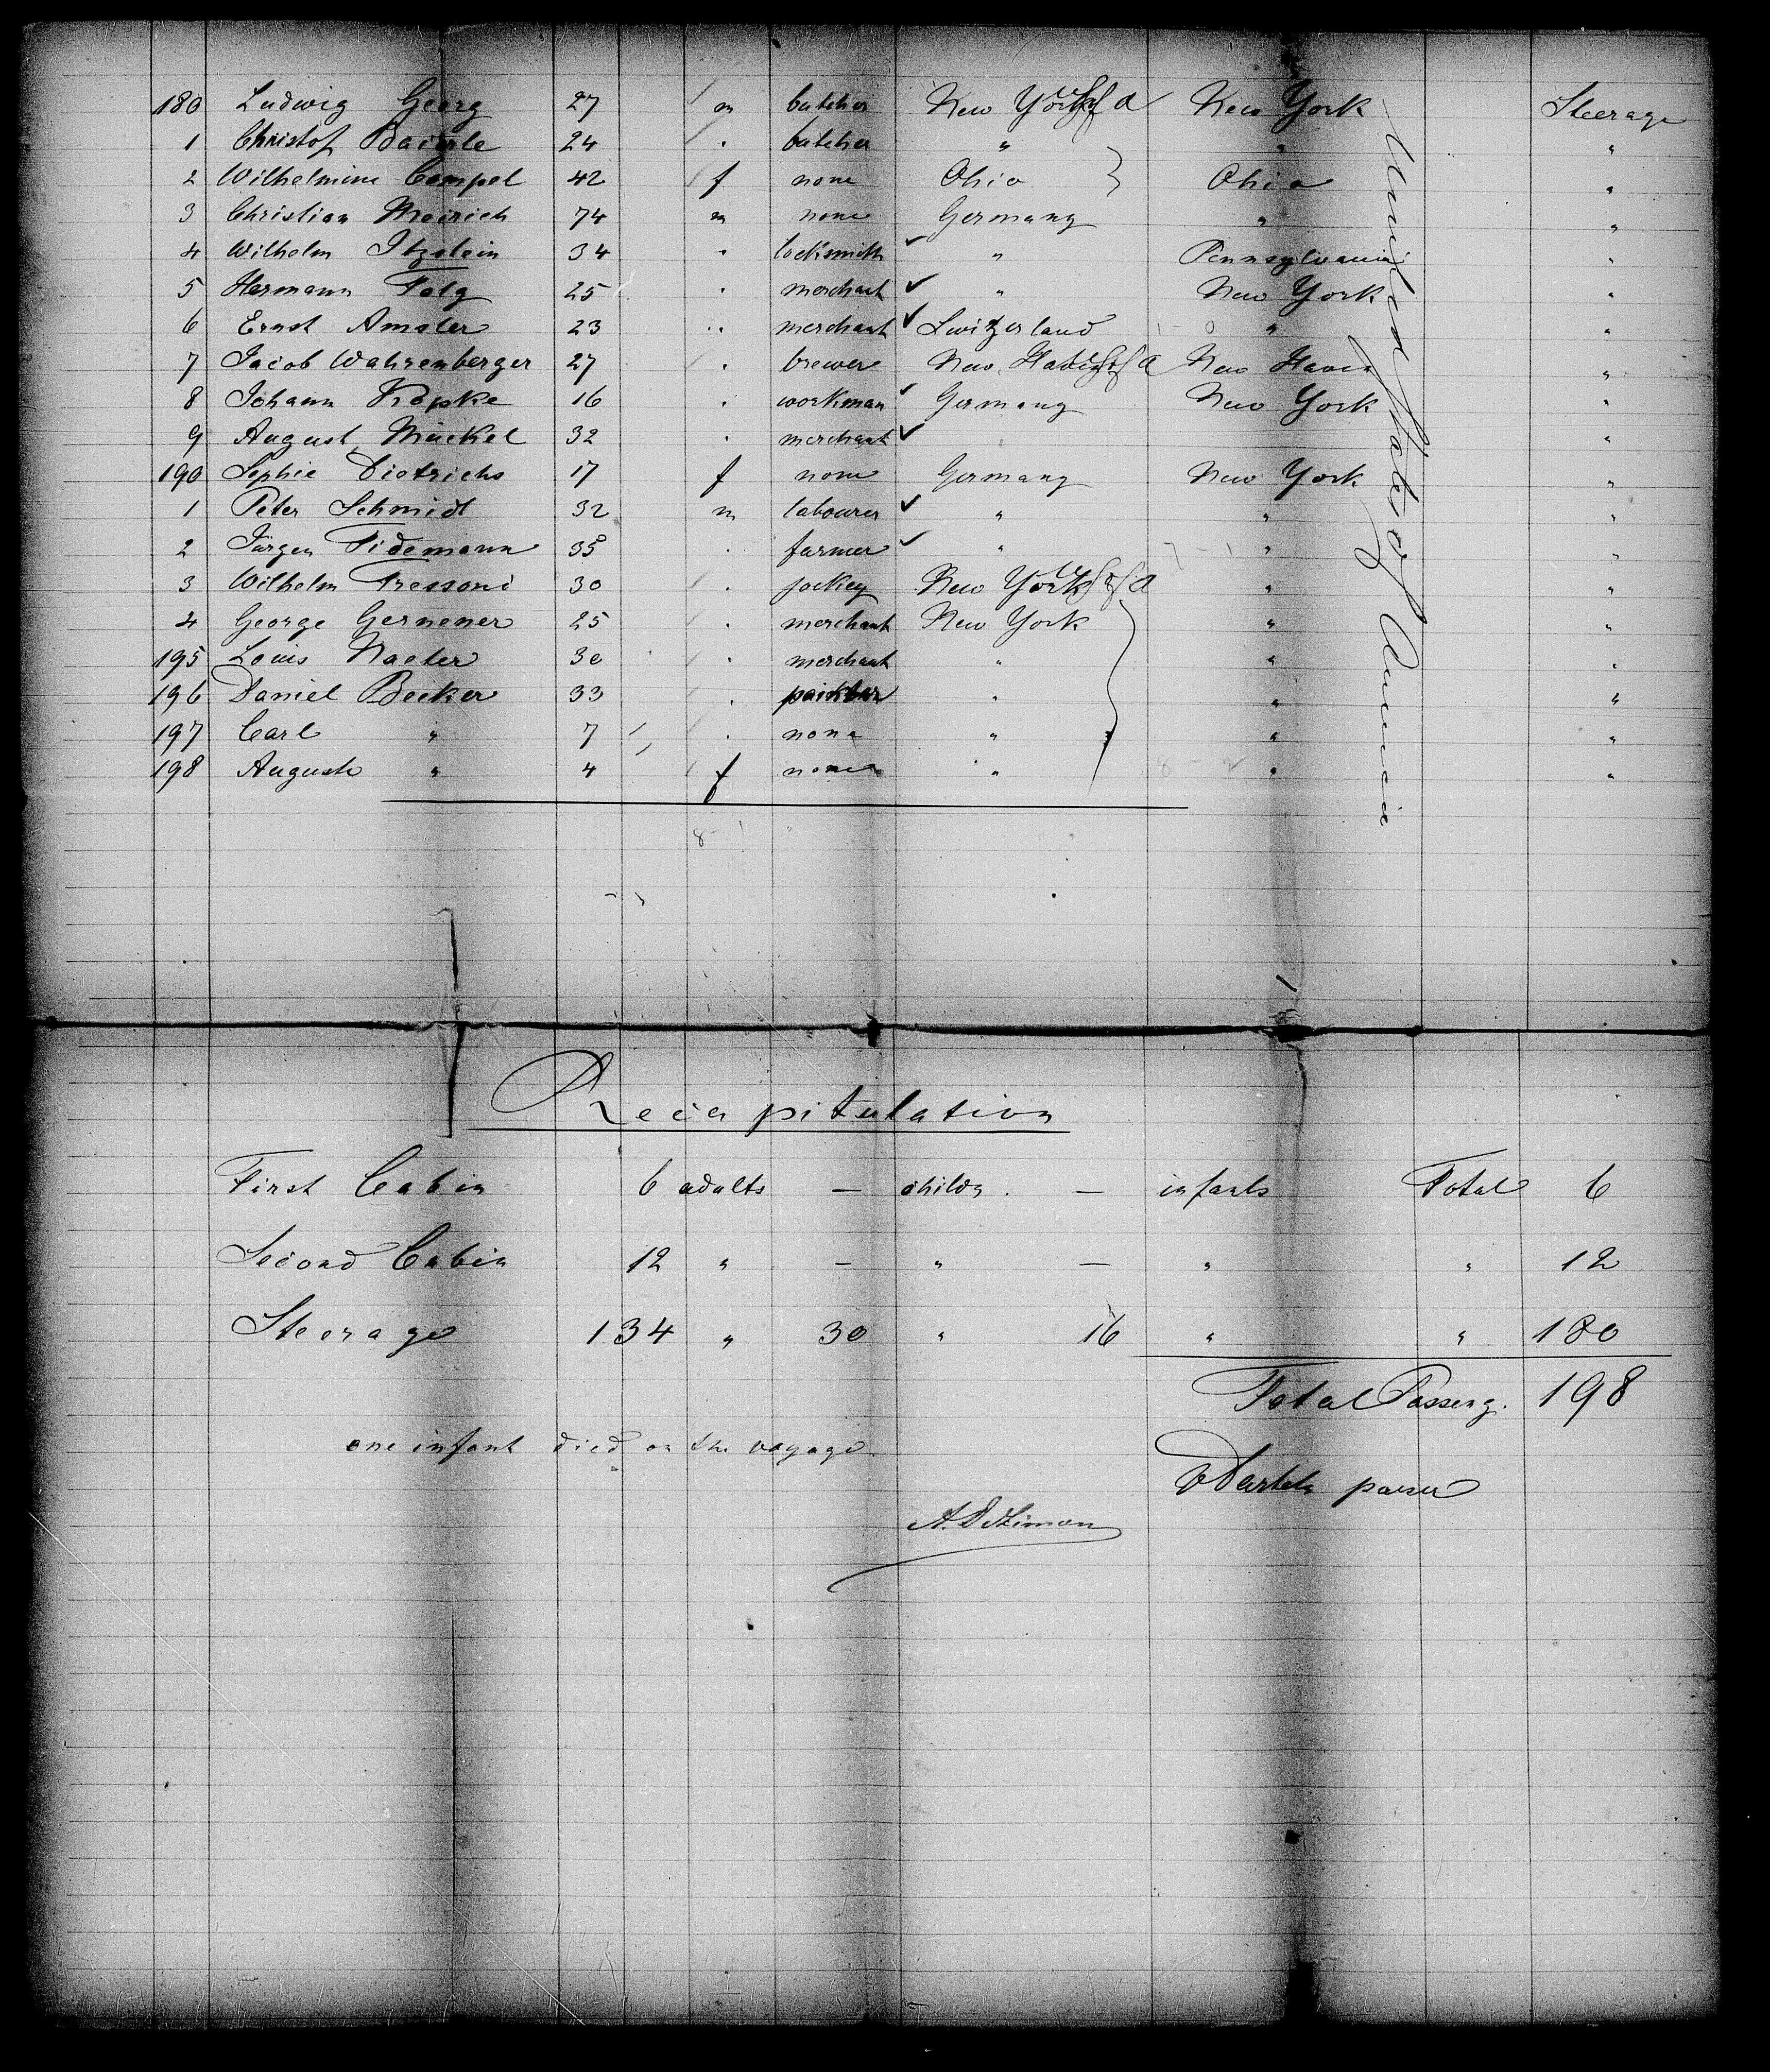 180 Ludwig Georg 27 m butcher New York U.S. of A New York Steerage
1 Christof Baierle 24 " butcher " " "
2 Wilhelmine Compel 42 f none Ohio } Ohio "
3 Christian Meirich 74 m none Germany " "
4 Wilhelm Itzstein 34 " locksmith ✓ " Pennsylvania "
5 Hermann Folg 25 " merchant ✓ " New York "
6 Ernst Amsler 23 " merchant ✓ Switzerland " "
7 Jacob Wahrenberger 27 " brewer New Haven U.S. of A New Haven "
8 Johann Kröpke 16 " workman ✓ Germany New York "
9 August Mückel 32 " merchant ✓ "
190 Sophie Dietrichs 17 f none Germany New York "
1 Peter Schmidt 32 m labourer ✓ " " "
2 Jürgen Tidemann 35 " farmer ✓ " " "
3 Wilhelm Fressoni 30 " jockey New York U.S. of A " "
4 George Gernener 25 " merchant New York " "
195 Louis Naeter 30 " merchant " " "
196 Daniel Becker 33 " painter " " "
197 Carl " 7 " none " " "
198 Auguste " 4 f none " " "
United States of America
Recapitulation
First Cabin 6 adults — childn. — infants Total 6
Second Cabin 12 " — " — " " 12
Steerage 134 " 30 " 16 " " 180
Total Passeng. 198
one infant died on the voyage.
purser